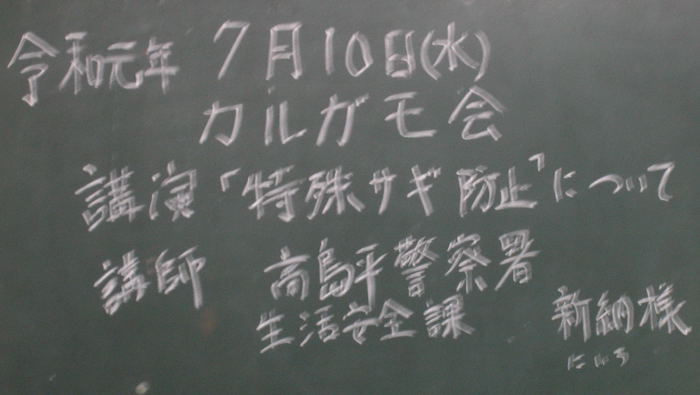 令和元年 7月10日(水)
カルガモ会
講演「特殊サギ防止」について
講師 高島平警察署
生活安全課 新納様
にいろ